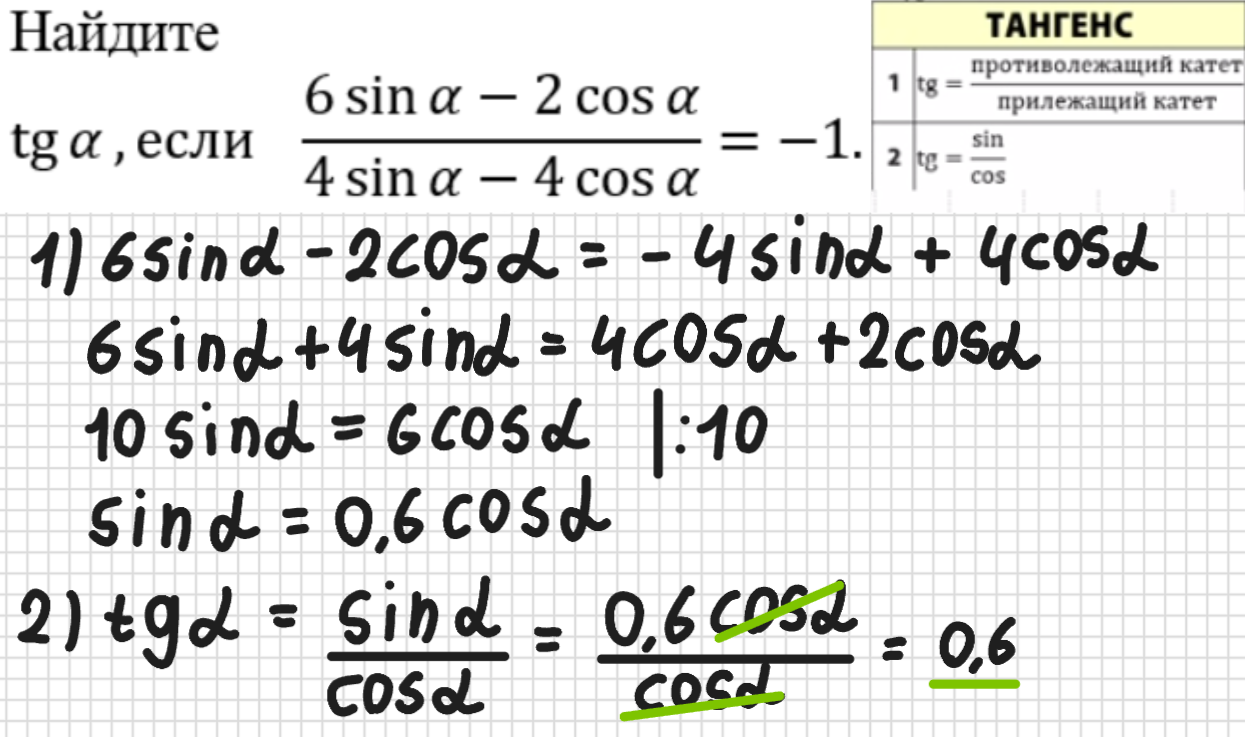 Найдите
tg α , если (6 sin α − 2 cos α)/(4 sin α − 4 cos α) = −1.
ТАНГЕНС
1 tg = противолежащий катет/прилежащий катет
2 tg = sin/cos
1) 6sinα - 2cosα = - 4sinα + 4cosα
6sinα + 4sinα = 4cosα + 2cosα
10 sinα = 6cosα |:10
sinα = 0,6cosα
2) tgα = sinα/cosα = 0,6cosα/cosα = 0,6